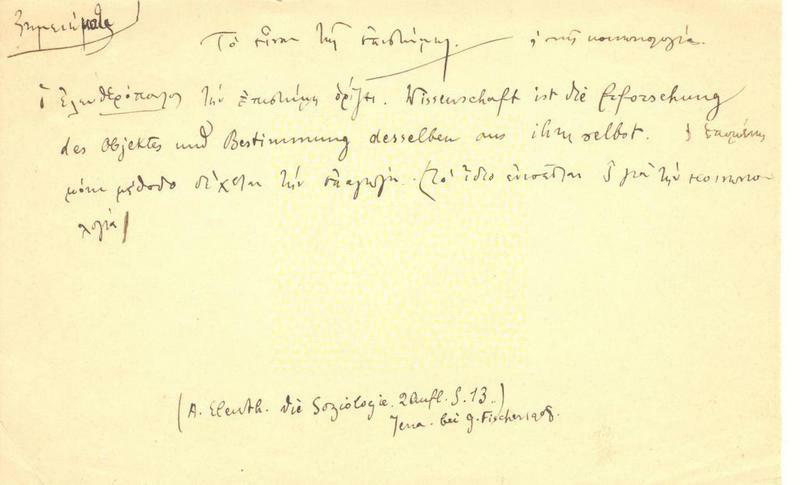 Σημειώματα
Τὸ εἶναι τῆς ἐπιστήμης. ἡ τῆς κοινωνιολογία.
Ὁ Ἐλευθερόπουλος τὴν ἐπιστήμη ὁρίζει. Wissenschaft ist die Erforschung
des Objektes und Bestimmung desselben aus ihm selbst.
μόνη μέθοδο δέχεται τὴν ἐπαγωγή. (τὸ ἴδιο γιὰ τὴν κοινωνιο-
λογία)
(A. Eleuth. die Soziologie. 2 Aufl. S. 13.)
Jena. bei G. Fischer 1908.